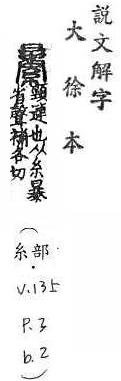 說文解字
大徐本
頸連也从糸暴
省聲補各切
(糸部・V.13上 P.3 b.2)